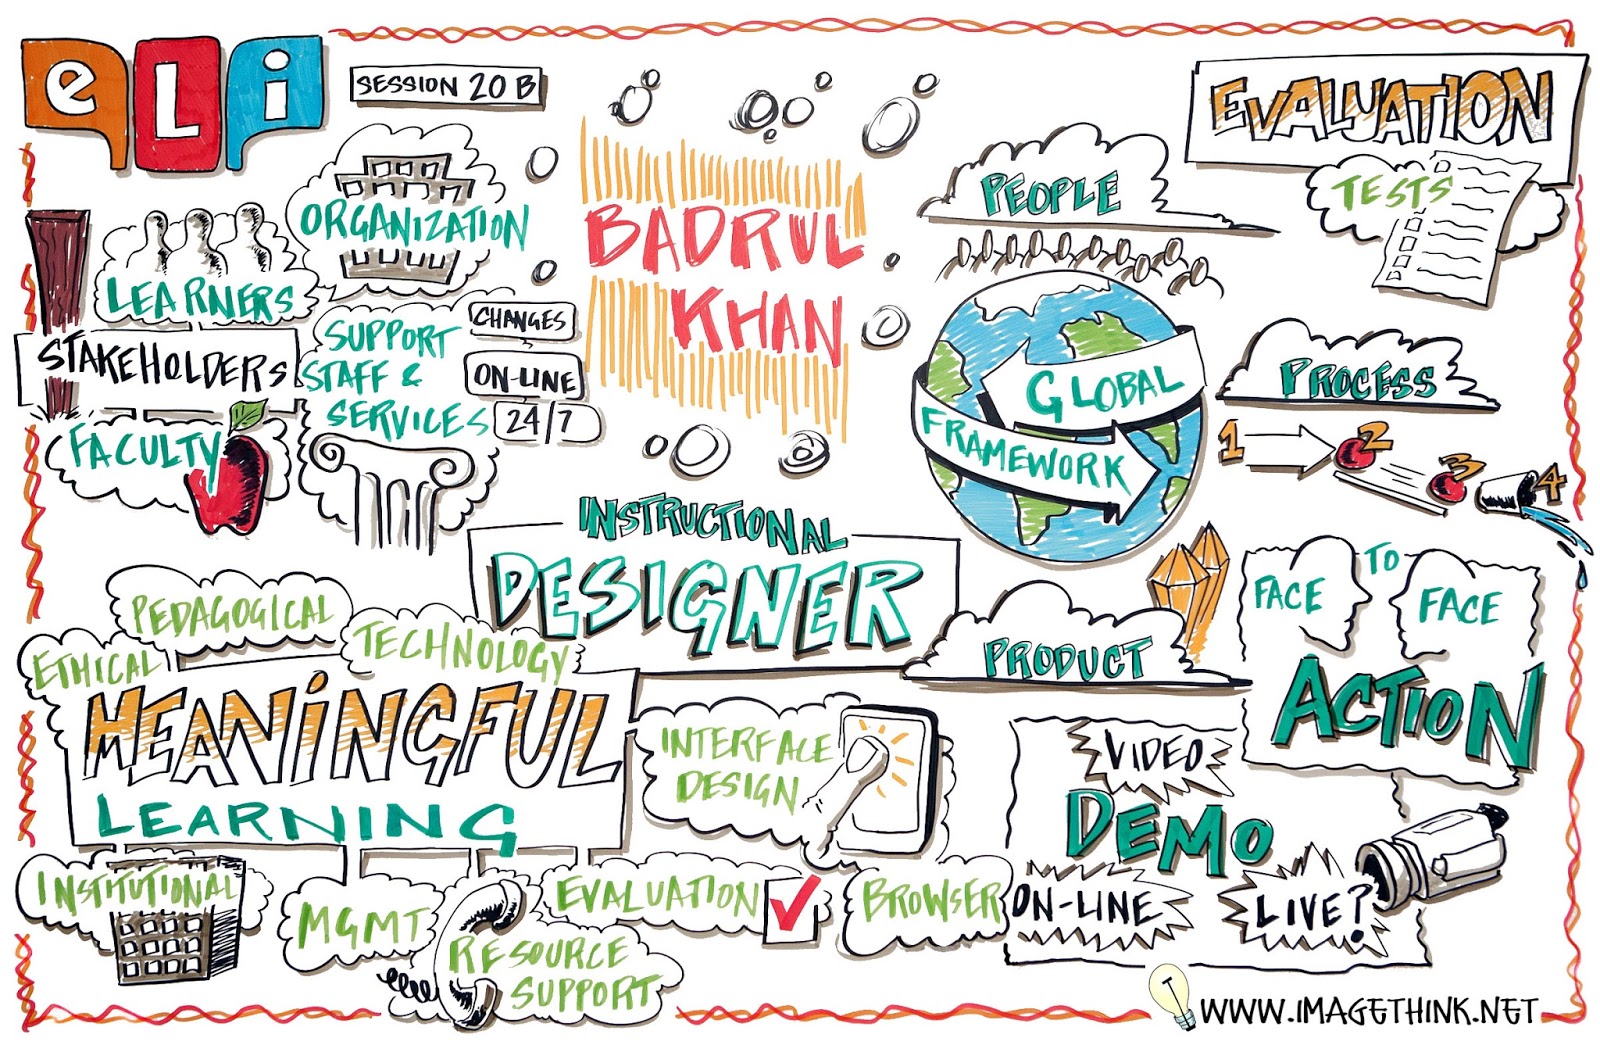 eLi
SESSION 20 B
ORGANIZATION
LEARNERS
STAKEHOLDERS
FACULTY
SUPPORT
STAFF &
SERVICES
CHANGES
ON-LINE
24/7
BADRUL
KHAN
PEOPLE
GLOBAL
FRAMEWORK
EVALUATION
TESTS
PROCESS
1
2
3
4
INSTRUCTIONAL
DESIGNER
PRODUCT
FACE
TO
FACE
ACTION
PEDAGOGICAL
ETHICAL
TECHNOLOGY
MEANINGFUL
LEARNING
INTERFACE
DESIGN
INSTITUTIONAL
MGMT
RESOURCE
SUPPORT
EVALUATION
BROWSER
VIDEO
DEMO
ON-LINE
LIVE?
WWW.IMAGETHINK.NET